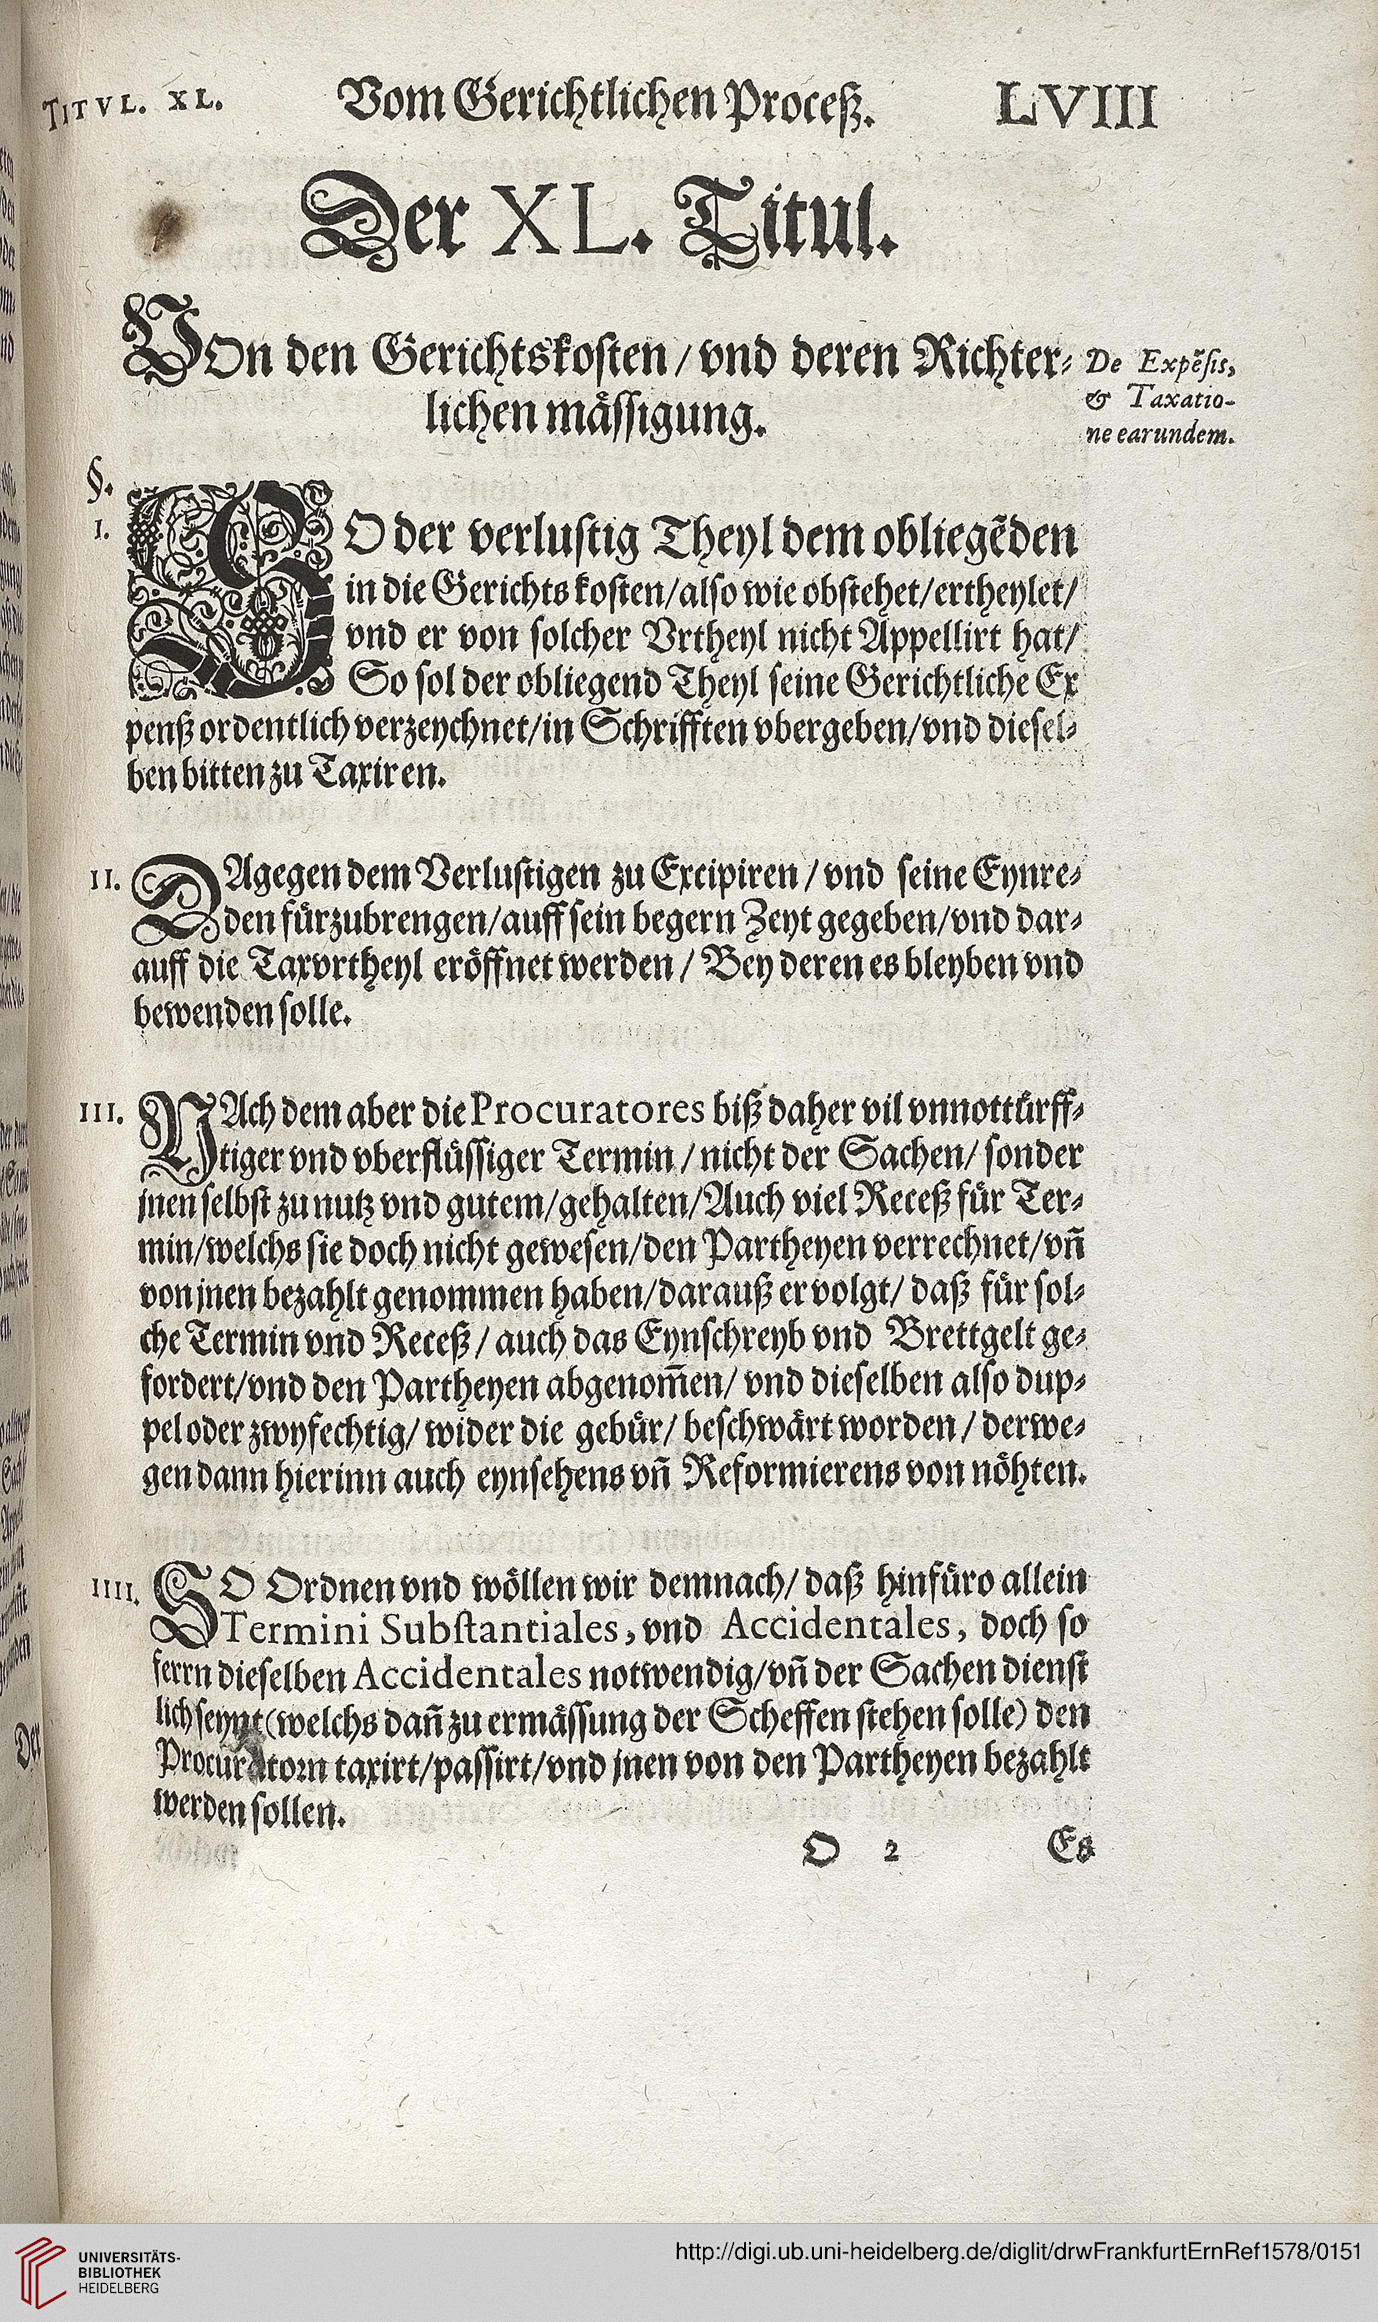 TITVL. XL. Vom Gerichtlichen Proceß. LVIII
Der XL. Titul.
VOn den Gerichtskosten / vnd deren Richter-
lichen mässigung.
De Expẽsis,
& Taxatio-
ne earundem.
§.
I. SO der verlustig Theyl dem obliegẽden
in die Gerichts kosten/also wie obstehet/ertheylet/
vnd er von solcher Vrtheyl nicht Appellirt hat/
So sol der obliegend Theyl seine Gerichtliche Ex
penß ordentlich verzeychnet/in Schrifften vbergeben/vnd diesel-
ben bitten zu Taxiren.
II. DAgegen dem Verlustigen zu Excipiren / vnd seine Eynre-
den fürzubrengen/auff sein begern Zeyt gegeben/vnd dar-
auff die Taxvrtheyl eröffnet werden / Bey deren es bleyben vnd
bewenden solle.
III. NAch dem aber die Procuratores biß daher vil vnnottürff-
tiger vnd vberflüssiger Termin / nicht der Sachen/ sonder
jnen selbst zu nutz vnd gutem/gehalten/Auch viel Receß für Ter-
min/welchs sie doch nicht gewesen/den Partheyen verrechnet/vñ
von jnen bezahlt genommen haben/darauß ervolgt/ daß für sol-
che Termin vnd Receß / auch das Eynschreyb vnd Brettgelt ge-
fordert/vnd den Partheyen abgenom̃en/ vnd dieselben also dup-
pel oder zwyfechtig/ wider die gebür/ beschwärt worden / derwe-
gen dann hierinn auch eynsehens vñ Reformierens von nöhten.
IIII. SO Ordnen vnd wöllen wir demnach/ daß hinfüro allein
Termini Substantiales, vnd Accidentales, doch so
ferrn dieselben Accidentales notwendig/vñ der Sachen dienst
lich seynt (welchs dañ zu ermässung der Scheffen stehen solle) den
Procuratorn taxirt/passirt/vnd jnen von den Partheyen bezahlt
werden sollen.
O 2 Es
UNIVERSITÄTS-
BIBLIOTHEK
HEIDELBERG
http://digi.ub.uni-heidelberg.de/diglit/drwFrankfurtErnRef1578/0151